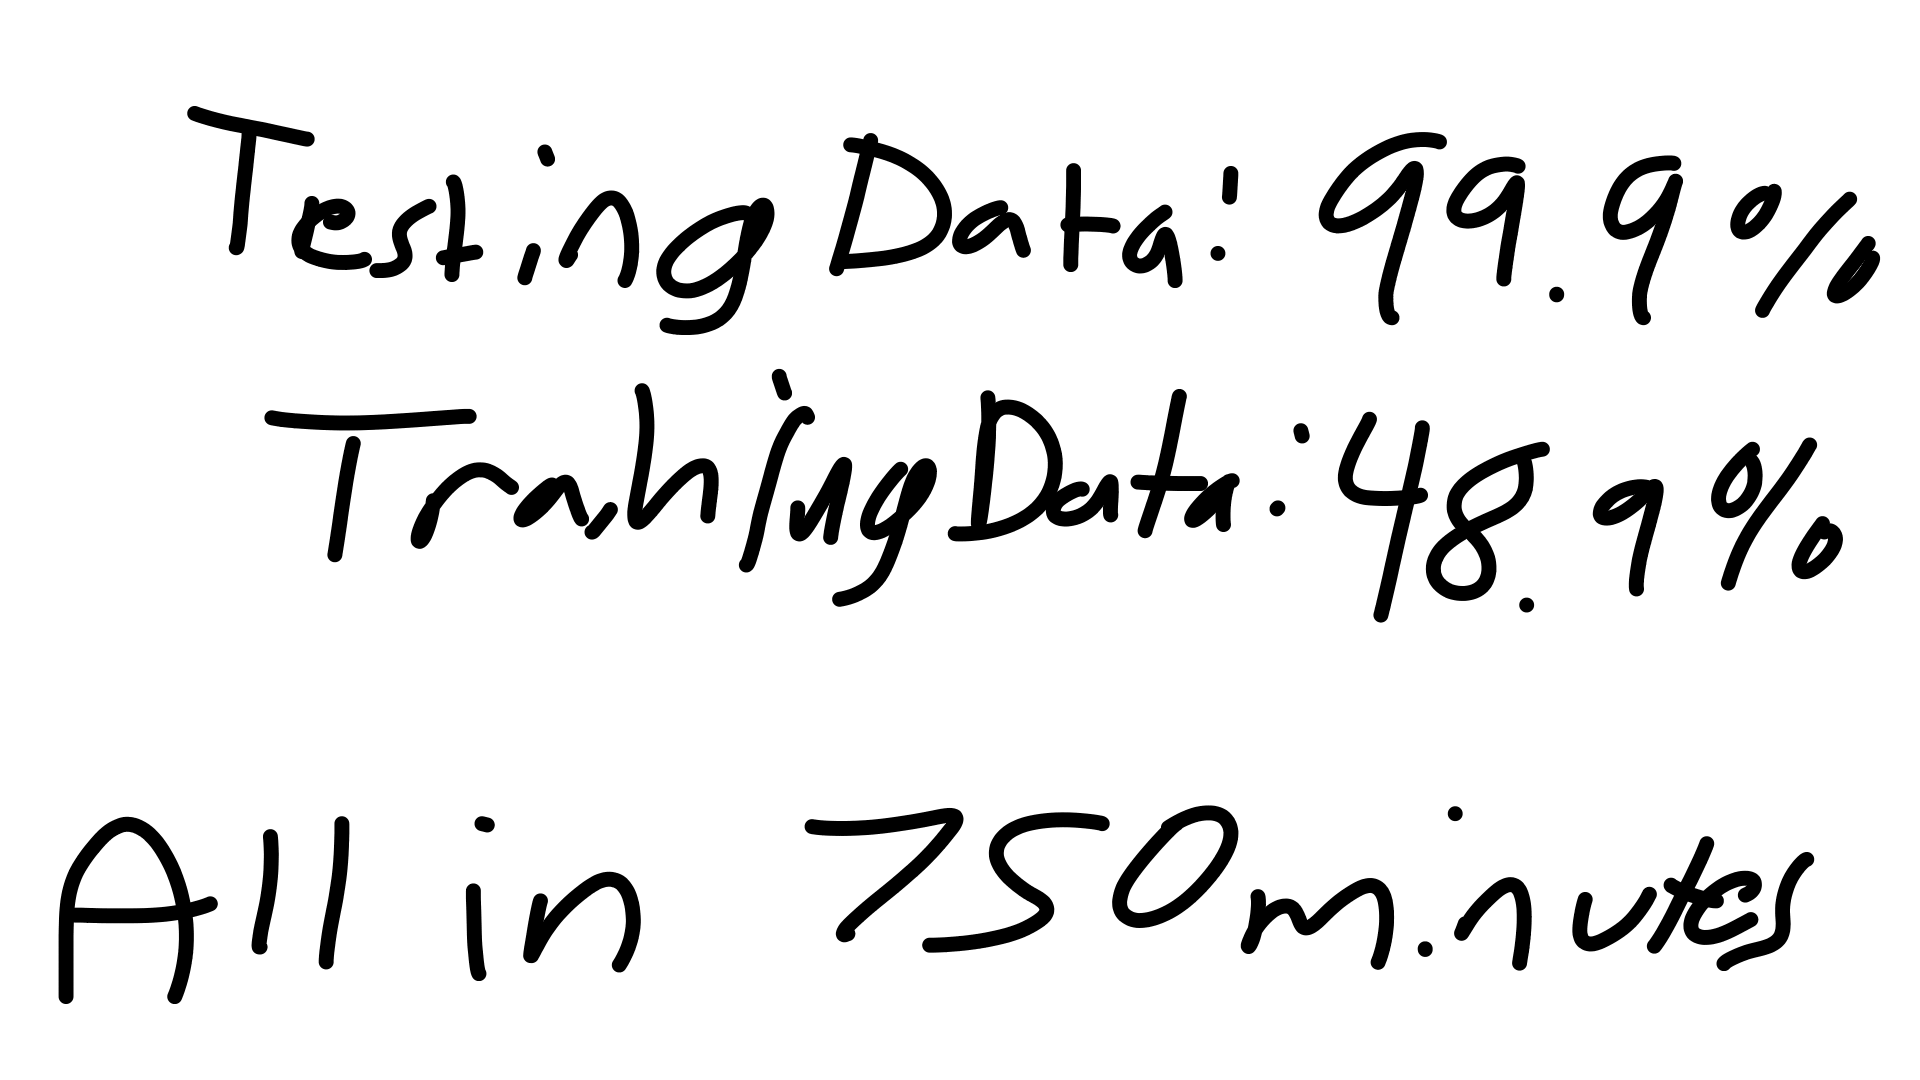 Testing Data: 99.9%
Trahing Data: 48.9%
All in 750 minutes